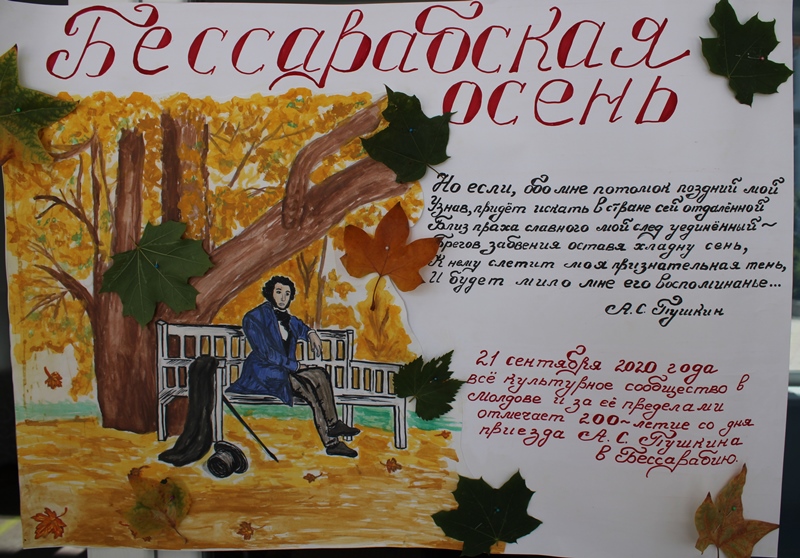 Бессарабская
осень
Но если, обо мне потомок поздний мой
Узнав, придёт искать в стране сей отдалённой
Близ праха славного мой след уединённый~
Брегов забвения оставя хладну сень,
К нему слетит моя признательная тень,
И будет мило мне его воспоминанье...
А.С Пушкин
21 сентября 2020 года
всё культурное сообщество в
Молдове и за её пределами
отмечает 200~летие со дня
приезда А. С. Пушкина
в Бессарабию.